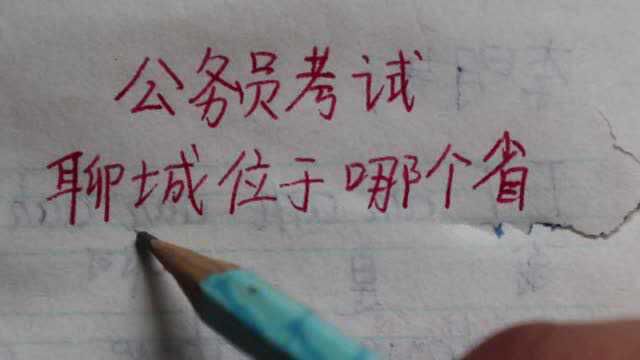 公务员考试
聊城位于哪个省